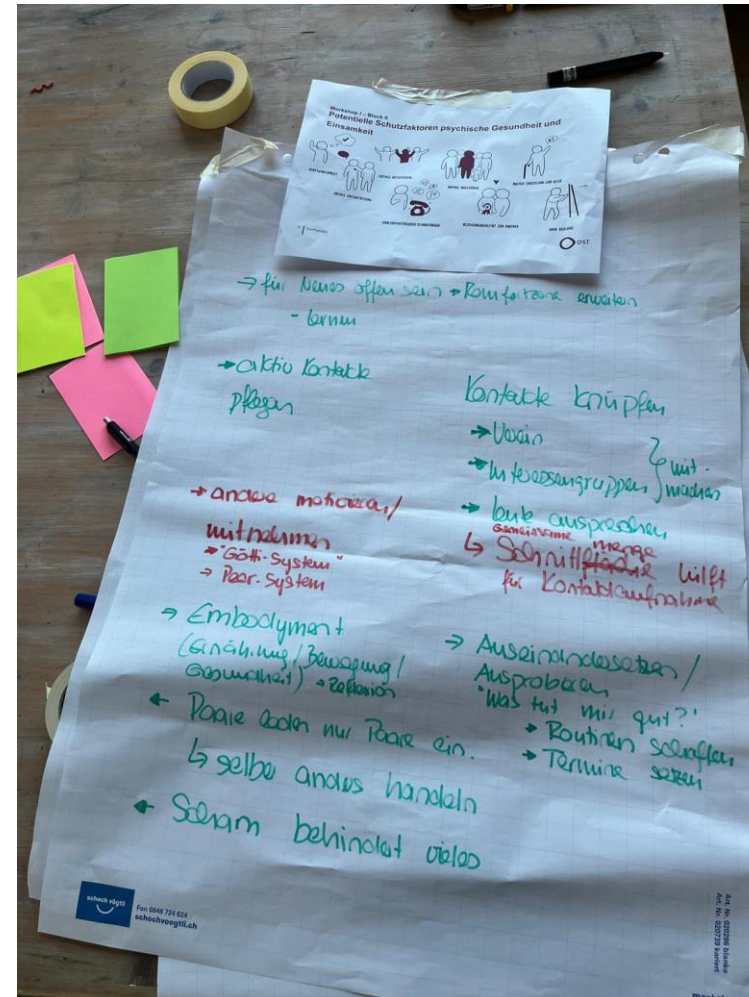 Workshop I – Block II
Potentielle Schutzfaktoren psychische Gesundheit und
Einsamkeit
SOZIALE UNTERSTÜTZUNG
OST
→ für Neues offen sein → Komfortzone erweitern
- lernen
→ aktiv Kontakte
pflegen
Kontakte knüpfen
→ Verein
→ Interessengruppen } mit-
machen
→ leute ansprechen
gemeinsame menge
↳ Schnittfläche hilft
für Kontaktaufnahme
→ andere motivieren/
mitnehmen
→ "Götti-System"
→ Peer-System
→ Embodyment
(Ernährung/Bewegung/
Gesundheit) → Reflexion
→ Auseinandersetzen/
Ausprobieren
"Was tut mir gut?"
→ Routinen schaffen
→ Termine setzen
← Paare laden nur Paare ein.
↳ selber anders handeln
← Scham behindert vieles
schoch vögtli
Fon 0848 724 624
schochvoegtli.ch
Art. Nr. 020296 blanko
Art. Nr. 020739 kariert